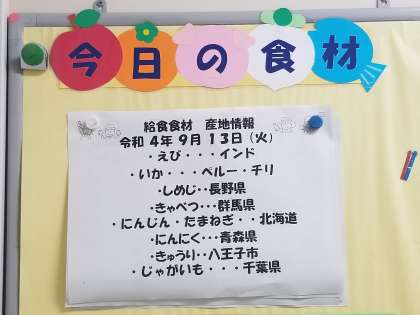 今日の食材
給食食材　産地情報
令和 4年 9月 13日（火）
・えび・・・インド
・いか・・・ペルー・チリ
・しめじ・・長野県
・きゃべつ・・・群馬県
・にんじん・たまねぎ・・北海道
・にんにく・・・青森県
・きゅうり・・八王子市
・じゃがいも・・・千葉県